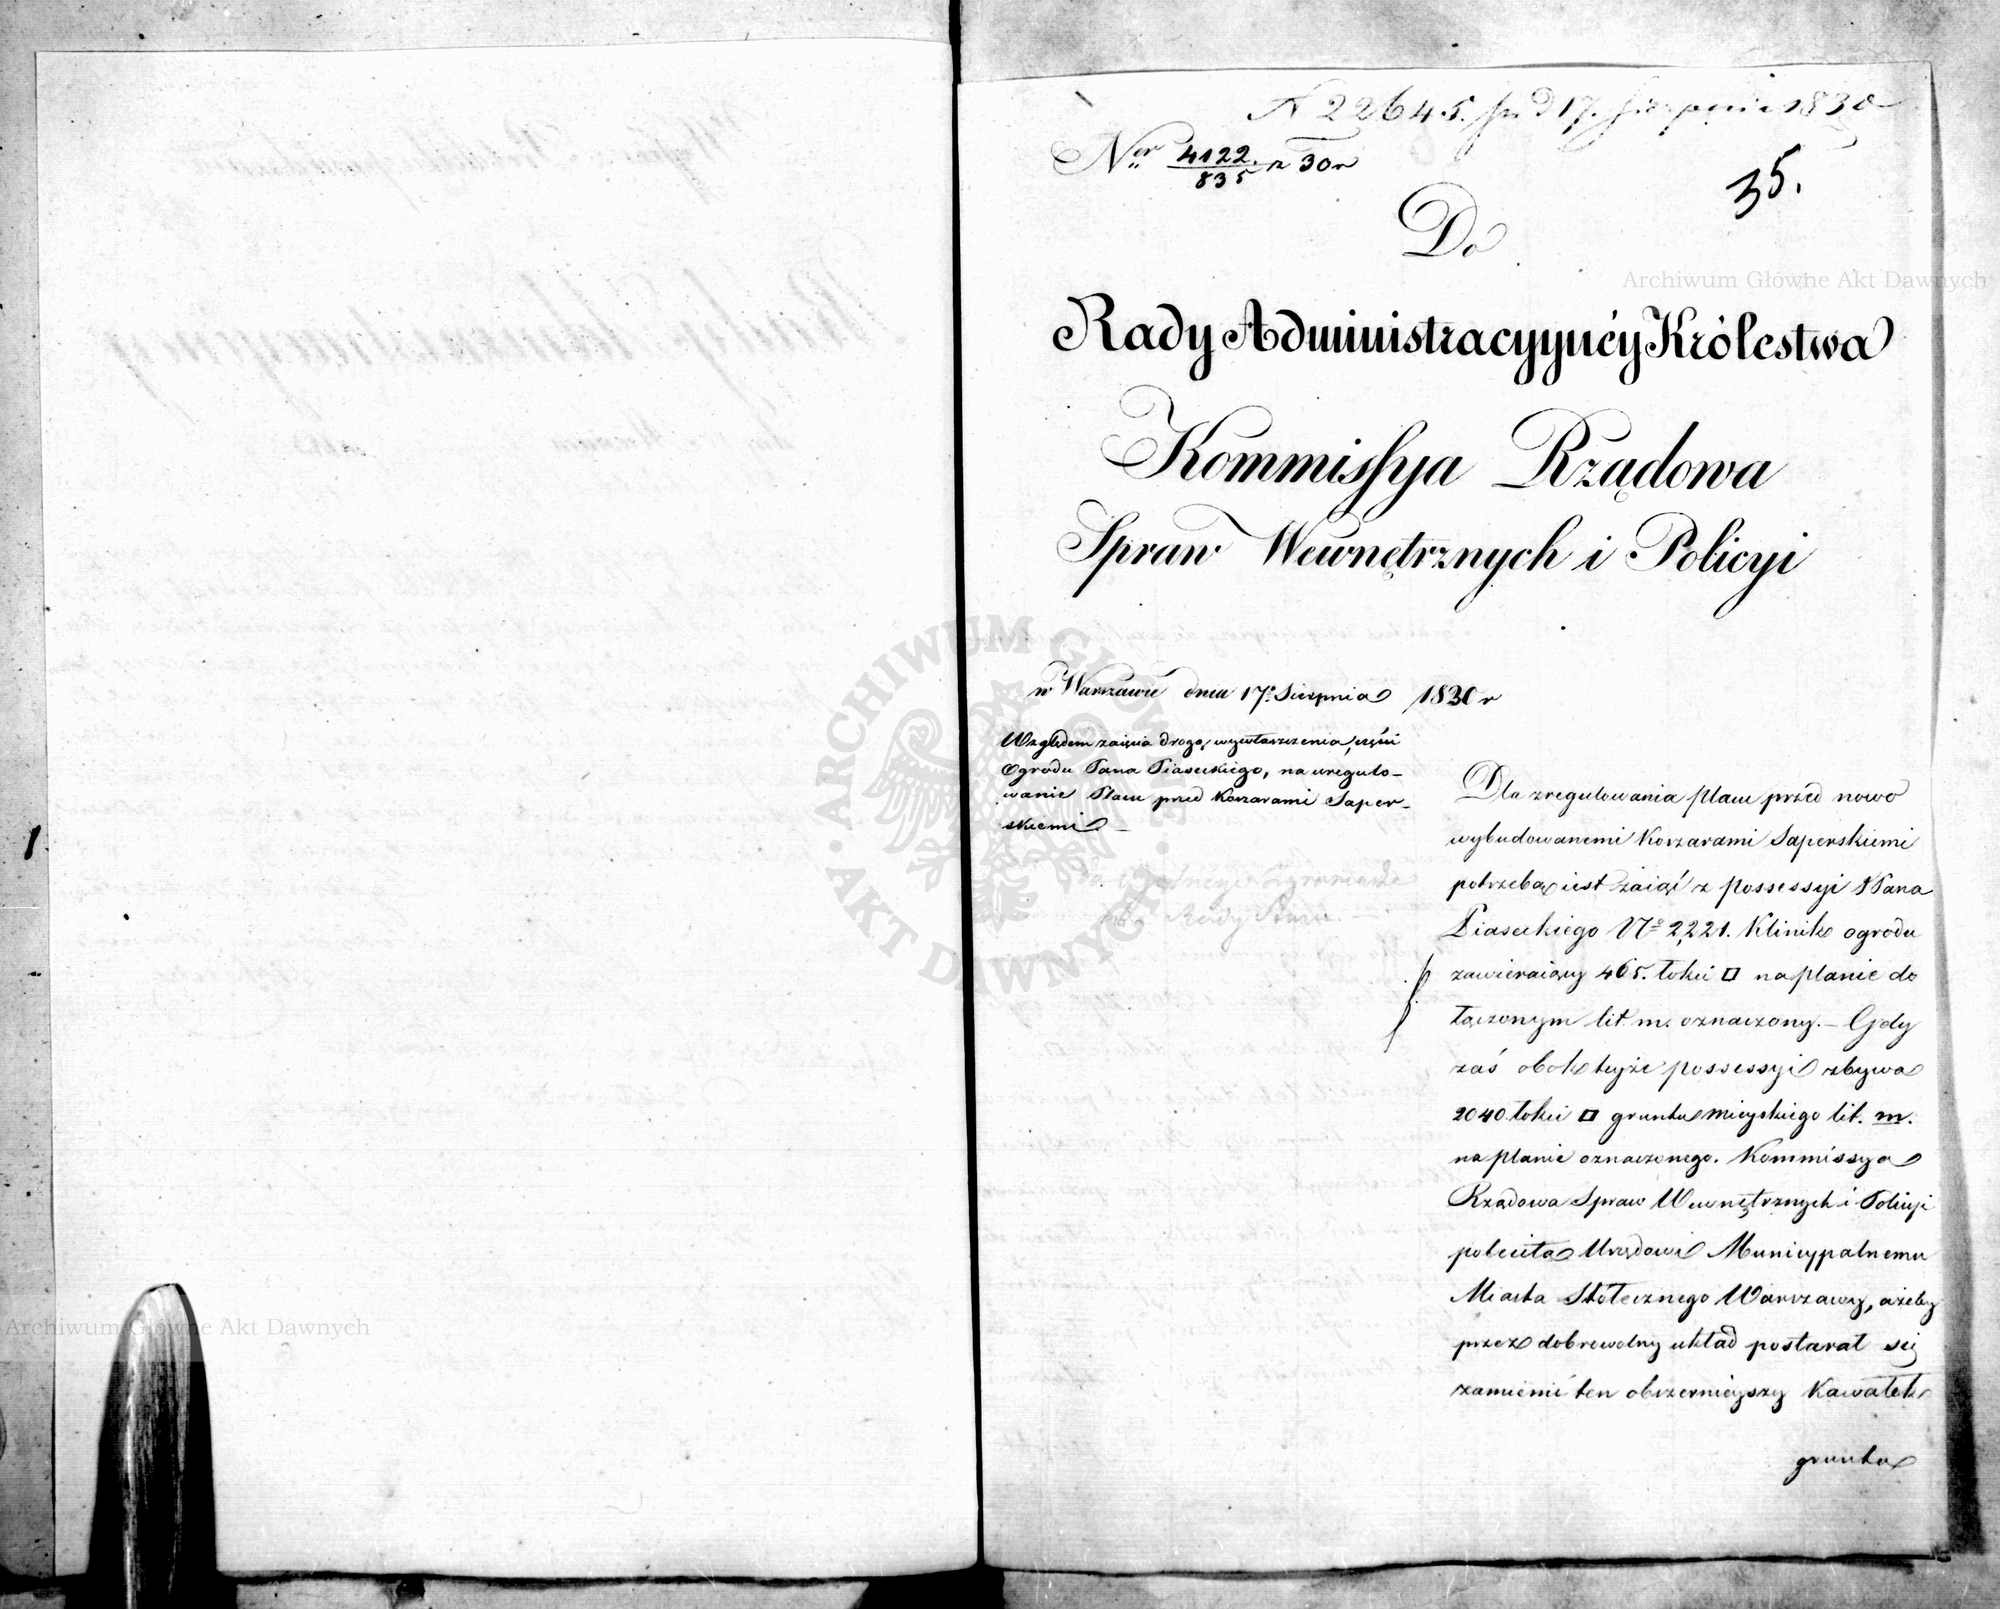 N 22645. pr. d 17. Sierpnia 1830
Ner 4122./835 z 30 r
35.
Do
Rady Administracyynéy Królestwa
Kommissya Rządowa
Spraw Wewnętrznych i Policyi
w Warszawie dnia 17. Sierpnia 1830 r
Względem zaięcia drogą wywłaszczenia, części
Ogrodu Pana Piaseckiego, na uregulo-
wanie Placu przed Koszarami Saper-
skiemi. –
Dla zregulowania placu przed nowo
wybudowanemi Koszarami Saperskiemi
potrzeba iest zaiąć z possessyi Pana
Piaseckiego No 2,221. Klinik ogrodu
zawieraiący 465. łokci □ na planie do
łączonym lit. m. oznaczony. – Gdy
zaś obok teyże possessyi zbywa
2040 łokci □ gruntu mieyskiego lit. m.
na planie oznaczonego. Kommissya
Rządowa Spraw Wewnętrznych i Policyi
poleciła Urzędowi Municypalnemu
Miasta Stołecznego Warszawy, ażeby
przez dobrowolny układ postarał się
zamienić ten obszernieyszy Kawałek
gruntu
Archiwum Główne Akt Dawnych
ARCHIWUM GŁÓWNE · AKT DAWNYCH ·
Archiwum Główne Akt Dawnych